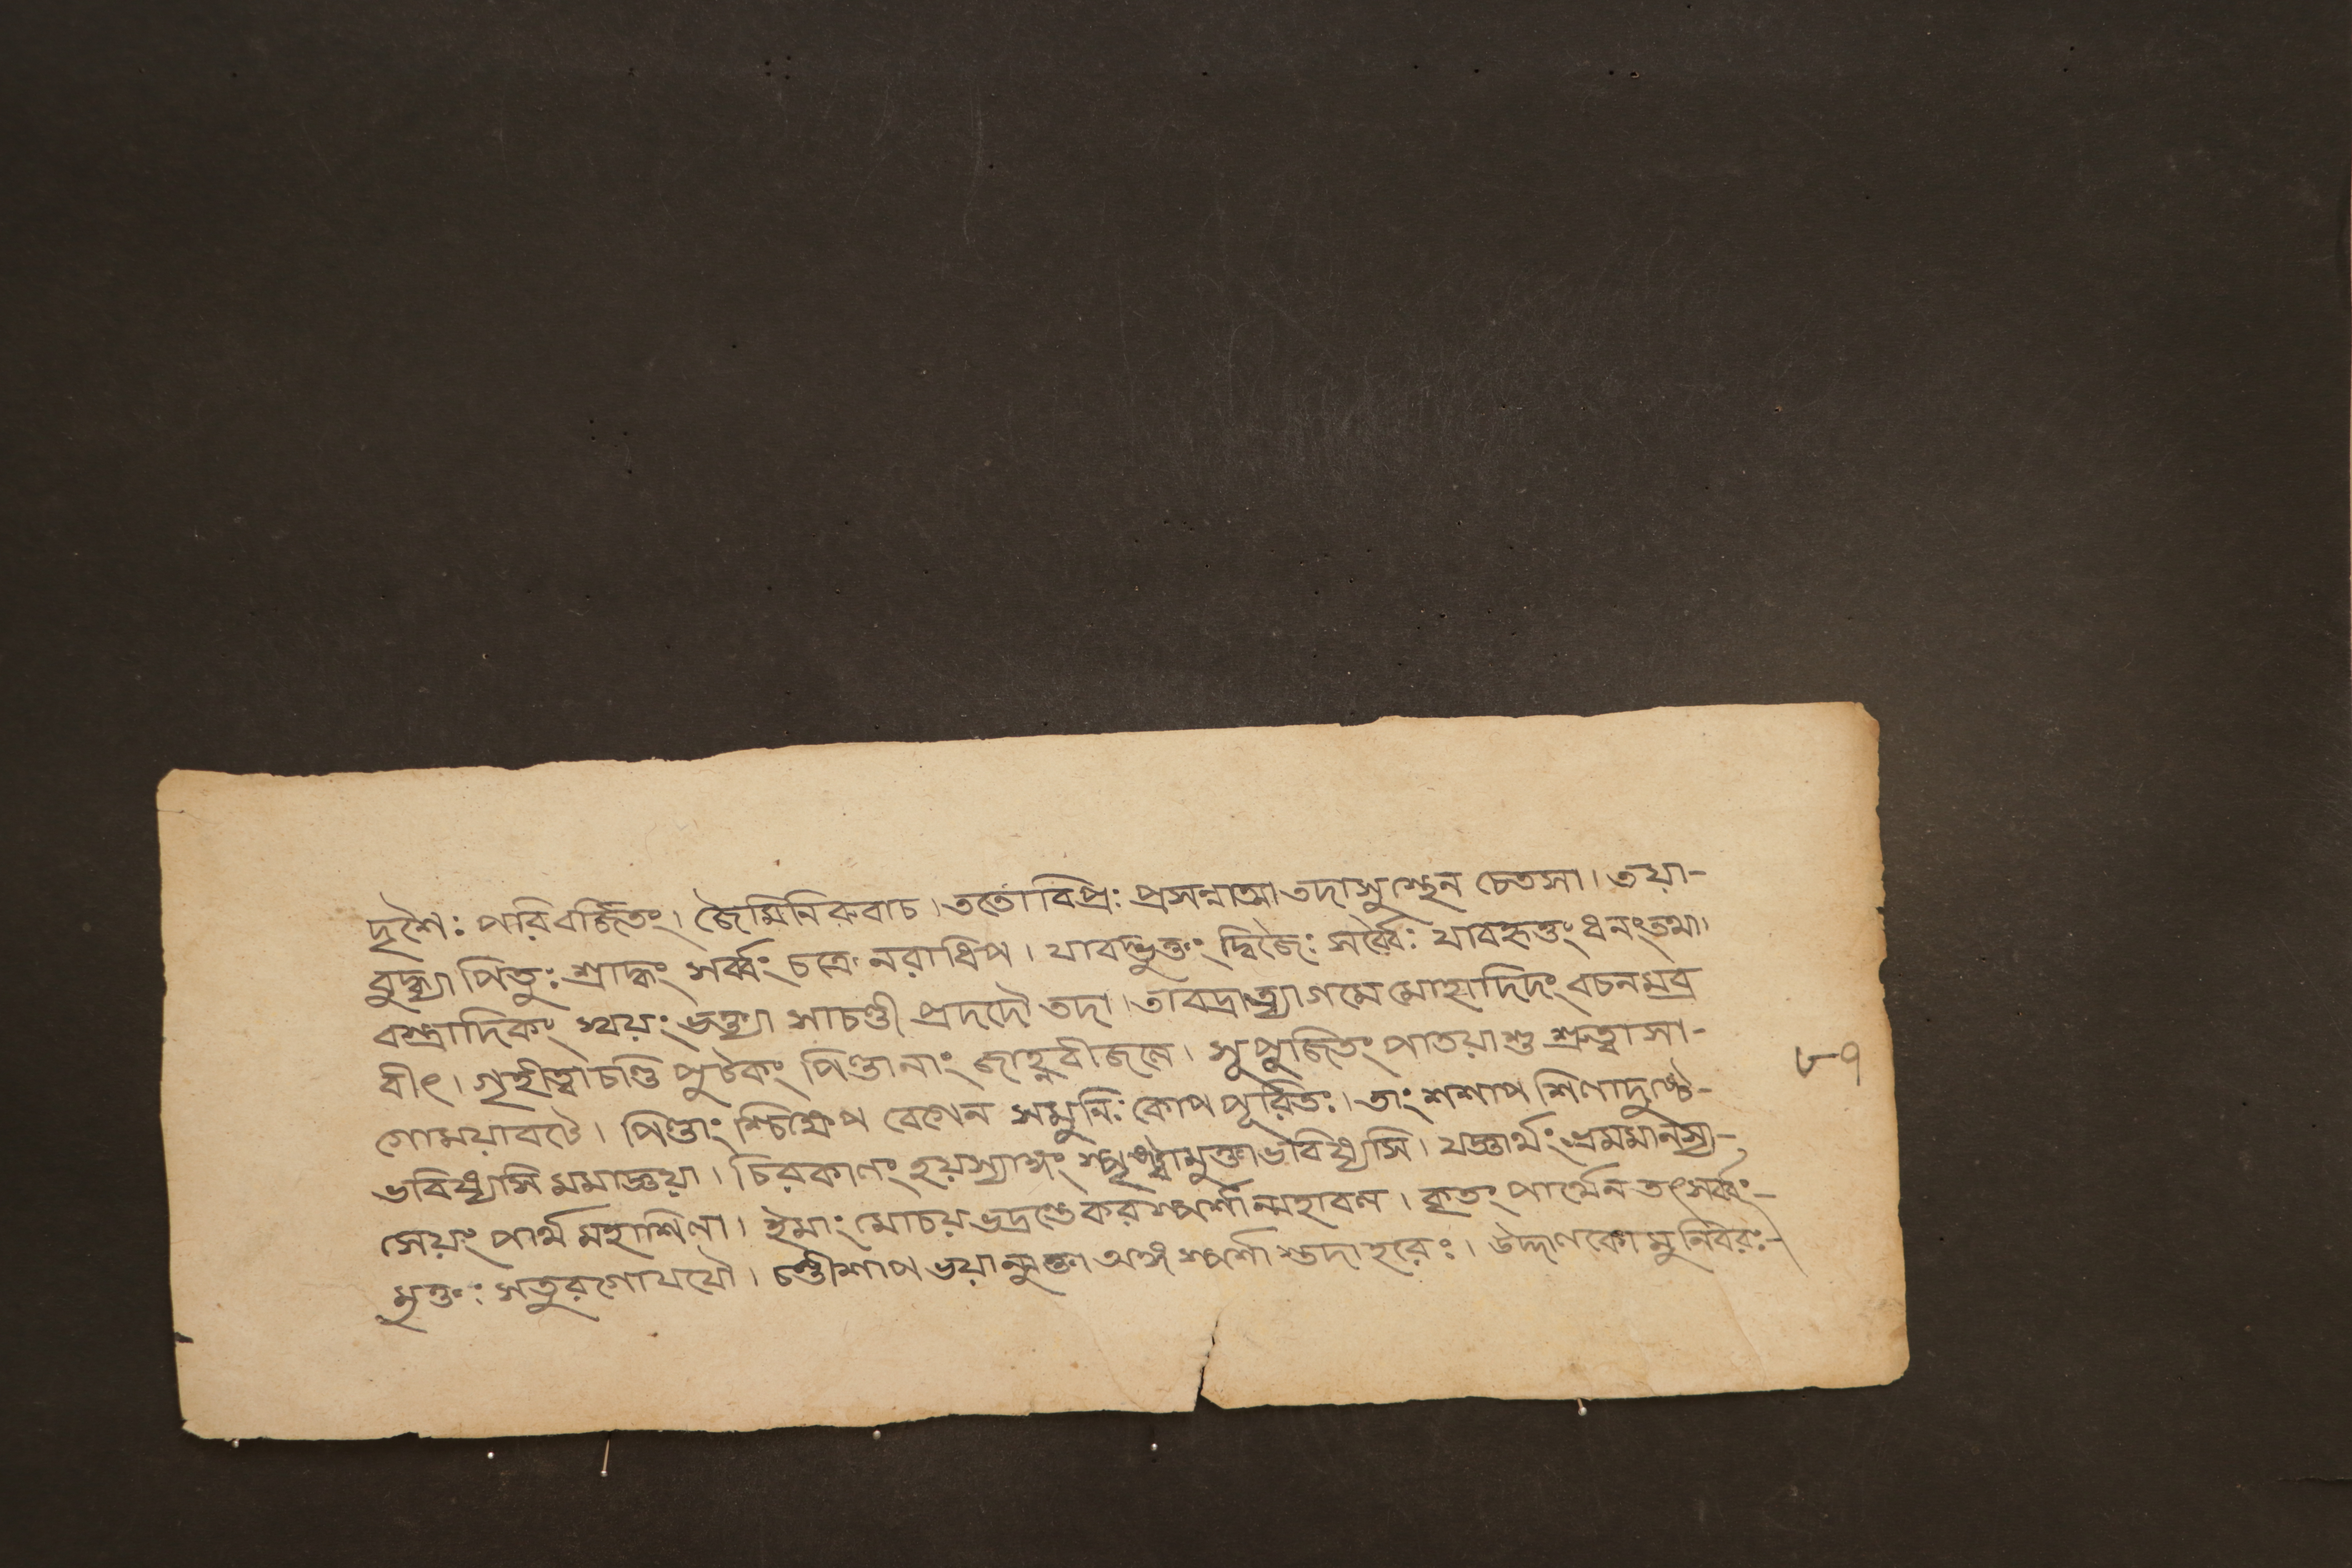 দৃশৈঃ পরিবর্জিতং। জৈমিনিরুবাচ। ততো বিপ্রঃ প্রসন্নাত্মা তদা সুস্থেন চেতসা। তয়া-
বুদ্ধ্যা পিতুঃ শ্রাদ্ধং সর্ব্বং চক্রে নরাধিপ। যাবদ্ভুক্তং দ্বিজৈঃ সর্ব্বৈঃ যাবদ্দত্তং ধনং তথা।
বস্ত্রাদিকং স্বয়ং ভক্ত্যা সা চণ্ডী প্রদদৌ তদা। তাবদ্রাত্র্যাগমে মোহাদিদং বচনমব্র
বীৎ। গৃহীত্বা চণ্ডি পুটকং পিণ্ডানাং জাহ্নবীজলে। সুপুজিতং পাতয়াশু শ্রুত্বা সা-
গোময়াবটে। পিণ্ডাংশ্চিক্ষেপ বেগেন স মুনিঃ কোপপূরিতঃ। তাং শশাপ শিলা দুষ্টে-
ভবিষ্যসি মমাজ্ঞয়া। চিরকালং হয়স্যাঙ্গং স্পৃষ্ট্বা মুক্তা ভবিষ্যসি। যজ্ঞার্থং ভ্রমমানস্য-
সেয়ং পার্থ মহাশিলা। ইমাং মোচয় ভদ্রং তে করস্পর্শান্মহাবল। কৃতং পার্থেন তৎসর্ব্বং-
মুক্তঃ স তুরগো যযৌ। চণ্ডী শাপভয়ান্মুক্তা অঙ্গস্পর্শাত্তদা হরেঃ। উদ্দালকো মুনিবরঃ-
৮৭